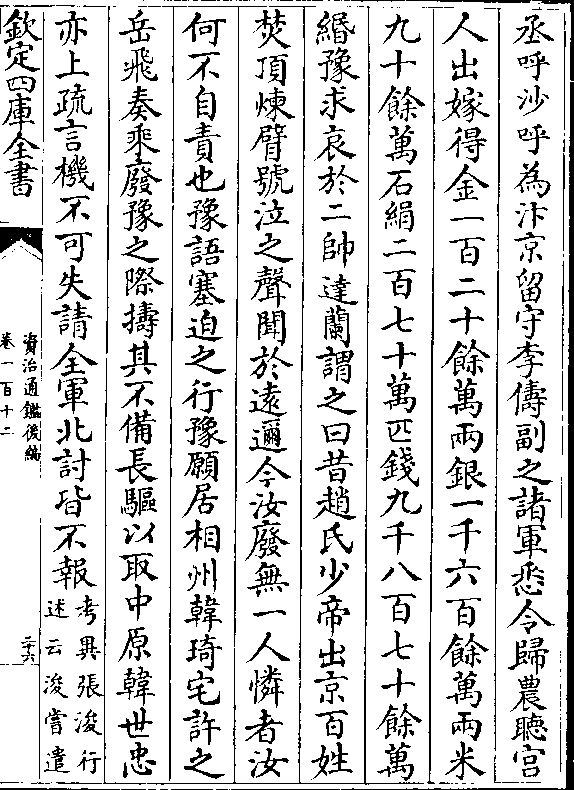 丞呼沙呼為汴京留守李儔副之諸軍悉令歸農聽宫
人出嫁得金一百二十餘萬兩銀一千六百餘萬兩米
九十餘萬石絹二百七十萬匹錢九千八百七十餘萬
緡豫求哀於二帥達蘭謂之曰昔趙氏少帝出京百姓
焚頂煉臂號泣之聲聞於遠邇今汝廢無一人憐者汝
何不自責也豫語塞迫之行豫願居相州韓琦宅許之
岳飛奏乘廢豫之際擣其不備長驅以取中原韓世忠
亦上疏言機不可失請全軍北討皆不報考異張浚行
述云浚嘗遣
欽定四庫全書
資治通鑑後編
卷一百十二
二十六